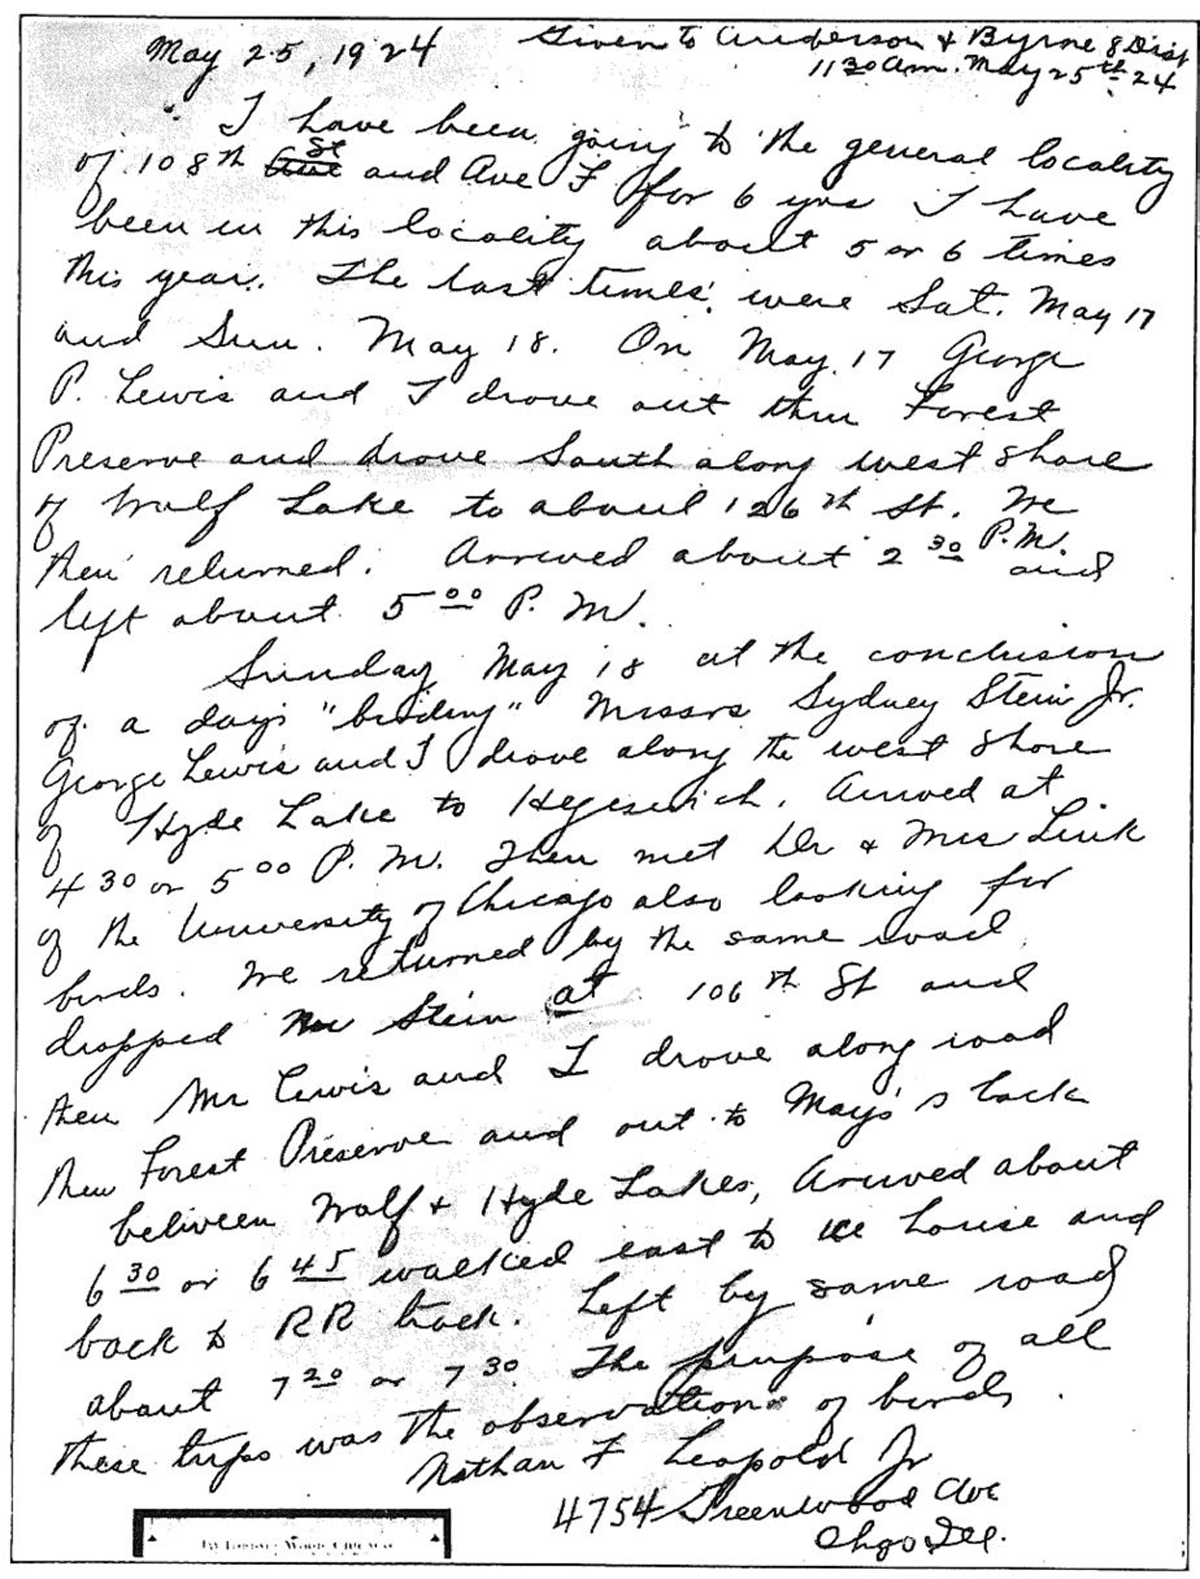 May 25, 1924
Given to Anderson & Byrne 8 Dist
11 30 am. May 25th 24
I have been going to the general locality
of 108th Ave St and Ave F for 6 yrs I have
been in this locality about 5 or 6 times
this year. The last times were Sat. May 17
and Sun. May 18. On May 17 George
P. Lewis and I drove out thru Forest
Preserve and drove South along west shore
of Wolf Lake to about 126th St. We
then returned. Arrived about 2 30 P.M. and
left about 5 00 P.M.
Sunday May 18 at the conclusion
of a day's "birding" Messrs Sydney Stein Jr.
George Lewis and I drove along the west shore
of Hyde Lake to Hegewich. Arrived at
4 30 or 5 00 P.M. Then met Dr & Mrs Link
of the University of Chicago also looking for
birds. We returned by the same road
dropped Mr Stein at 106th St and
then Mr Lewis and I drove along road
thru Forest Preserve and out to tack
between Wolf & Hyde Lakes, Arrived about
6 30 or 6 45 walked east to ice house and
back to RR track. Left by same road
about 7 20 or 7 30 The purpose of all
these trips was the observation of birds.
Nathan F Leopold Jr
4754 Greenwood Ave
Chgo Ill.